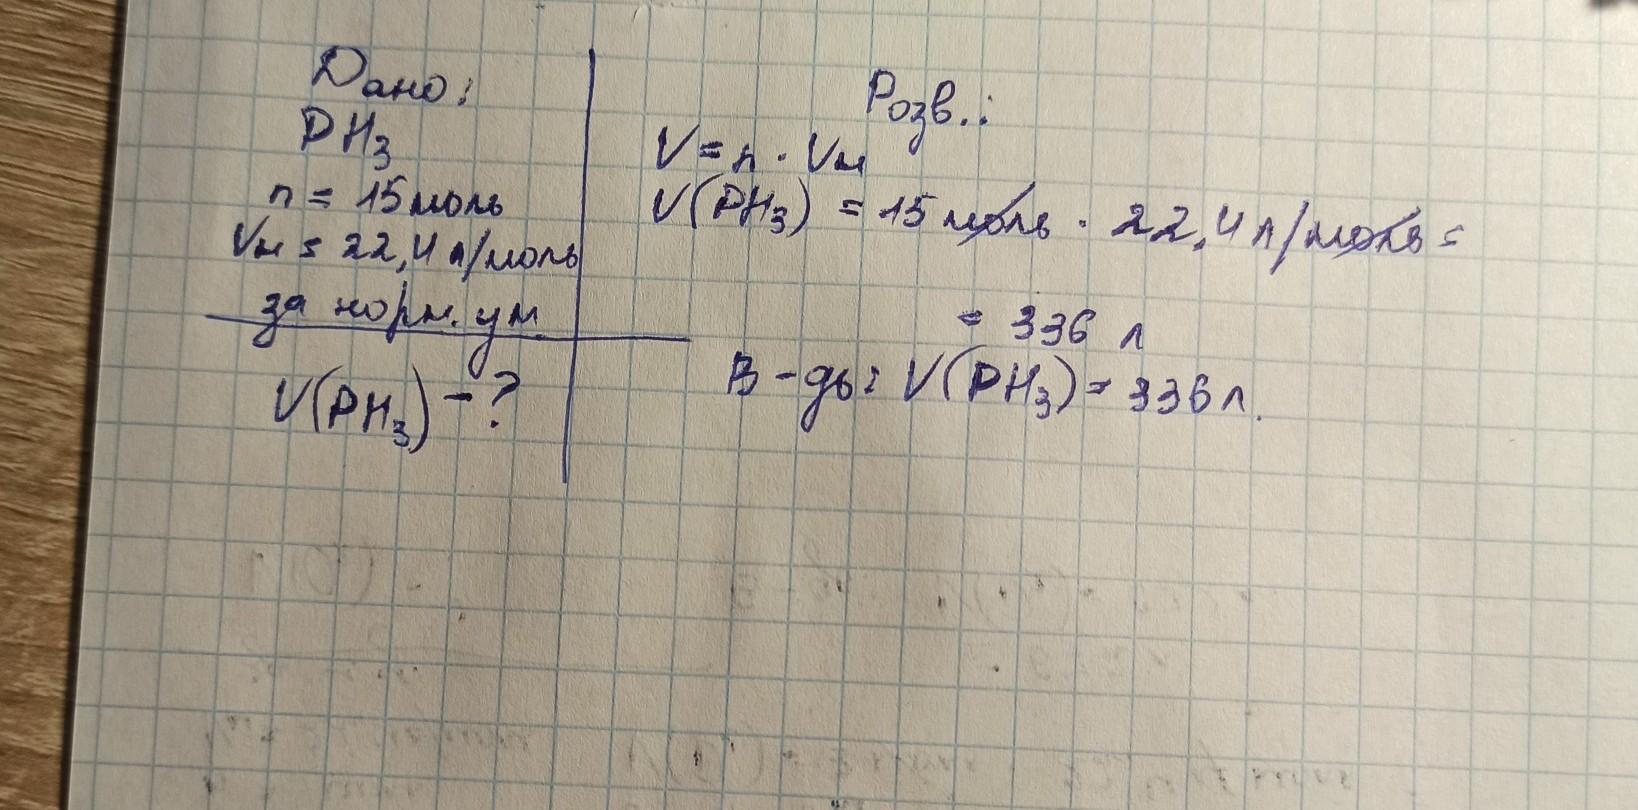 Дано:
PH₃
n = 15 моль
Vм = 22,4 л/моль
за норм. ум
V(PH₃) - ?
Розв.:
V = n · Vм
V(PH₃) = 15 моль · 22,4 л/моль =
= 336 л
В-дь: V(PH₃) = 336 л.